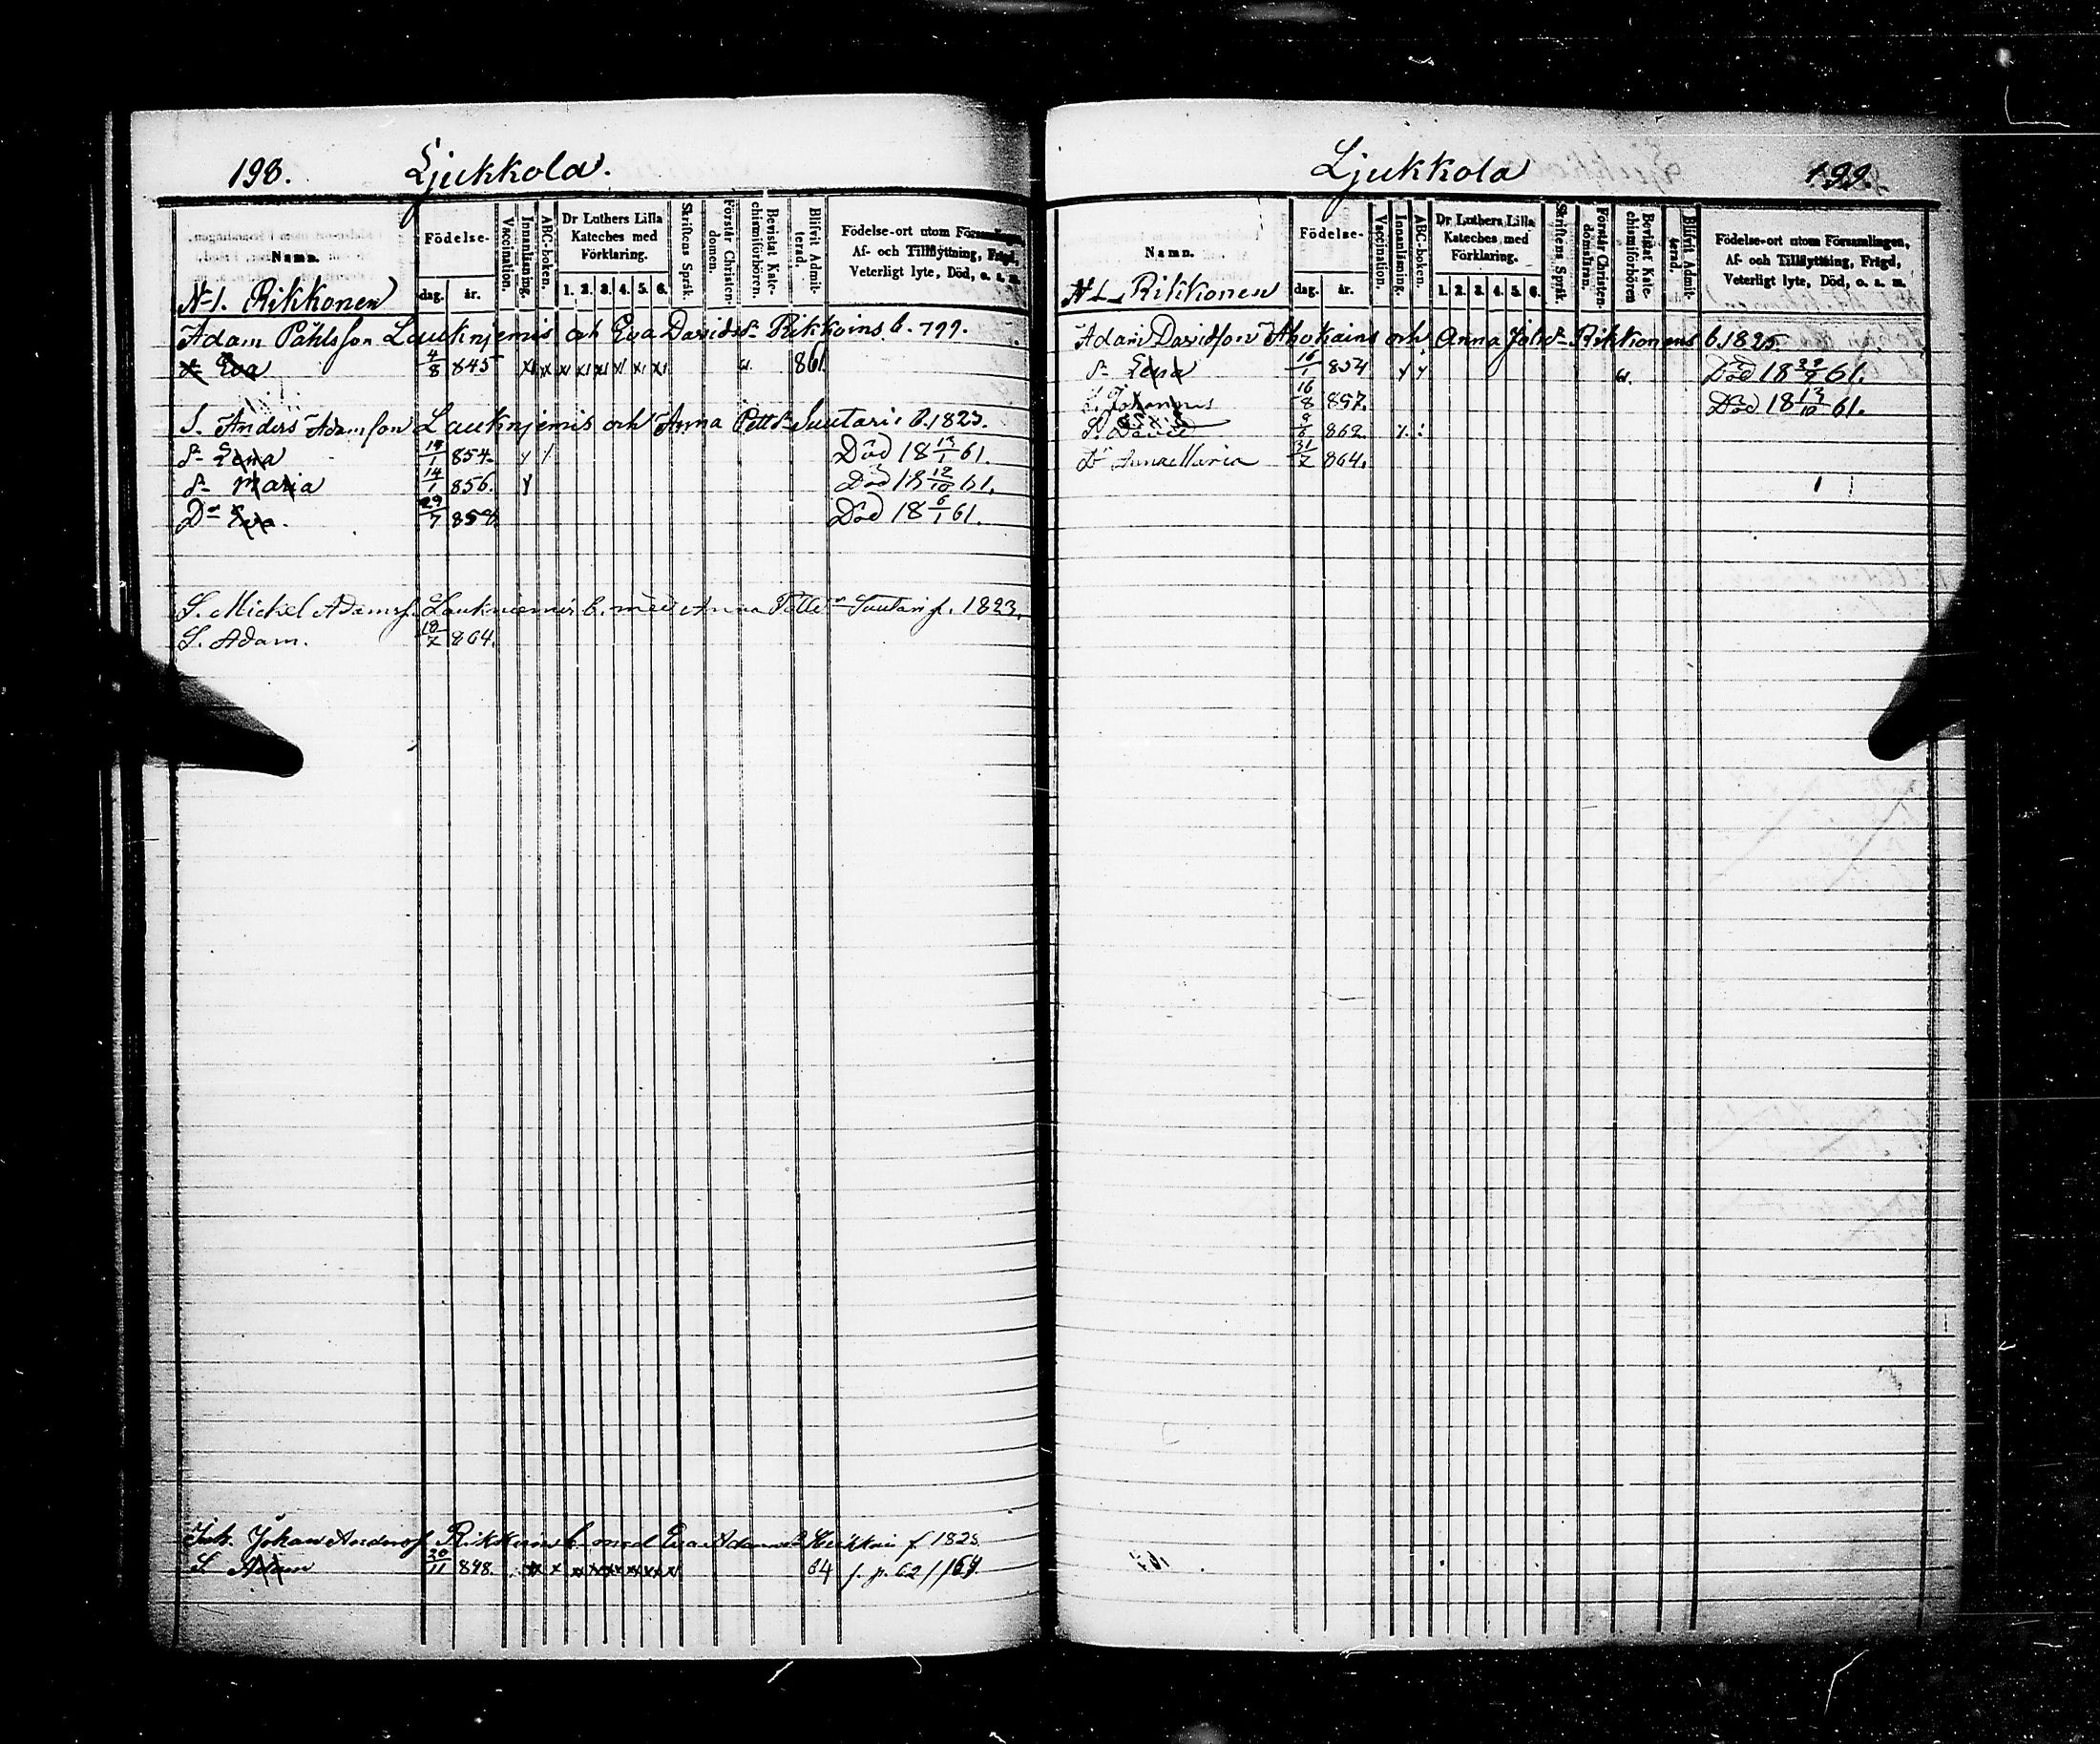 198. Ljukkola.
Namn.
Födelse-
dag. år.
Vaccination.
Innanläsning.
ABC-boken.
Dr Luthers Lilla Kateches med Förklaring.
1. 2. 3. 4. 5. 6.
Skriftens Språk.
Förstår Christen-domen.
Bevistat Kate-chismiförhören.
Blifvit Admit-terad.
Födelse-ort utom Församlingen,
Af- och Tillflyttning, Frägd,
Veterligt lyte, Död, o. s. m.
No 1. Rikkonen
Adam Påhlsson Lauknjemis och Eva Davidsdr Rikkoins b. 799.
Eva 4/8 845 861.
S. Anders Adamsson Lauknjemis och Anna Pettdr Suutari b. 1823.
Dr Lena 854. Död 18 61.
Dr Maria 14/1 856. Död 18 12/10 61.
Dr Eva. 29/7 858 Död 18 6/1 61.
S. Mickel Adamss. Laukniemis b. med Anna Suutari f. 1823.
S. Adam. 18/7 864.
Inh. Johan Anderss. Rikkoins b. med Eva Adamsdr f. 1825.
S Adam 30/11 848. 64 f. p. 62 / 164.
Ljukkola 199.
Namn.
Födelse-
dag. år.
Vaccination.
Innanläsning.
ABC-boken.
Dr Luthers Lilla Kateches med Förklaring.
1. 2. 3. 4. 5. 6.
Skriftens Språk.
Förstår Christen-domsläran.
Bevistat Kate-chismiförhören
Blifvit Admit-terad.
Födelse-ort utom Församlingen,
Af- och Tillflyttning, Frägd,
Veterligt lyte, Död, o. s. m.
No 1. Rikkonen
Adam Davidsson Ahokains och Anna Rikkonens b. 1825.
Dr Lena 16/1 854 Död 18 61.
S. Johannes 16/8 857. Död 18 61.
S. David 862.
Dr Anna Maria 31/7 864.